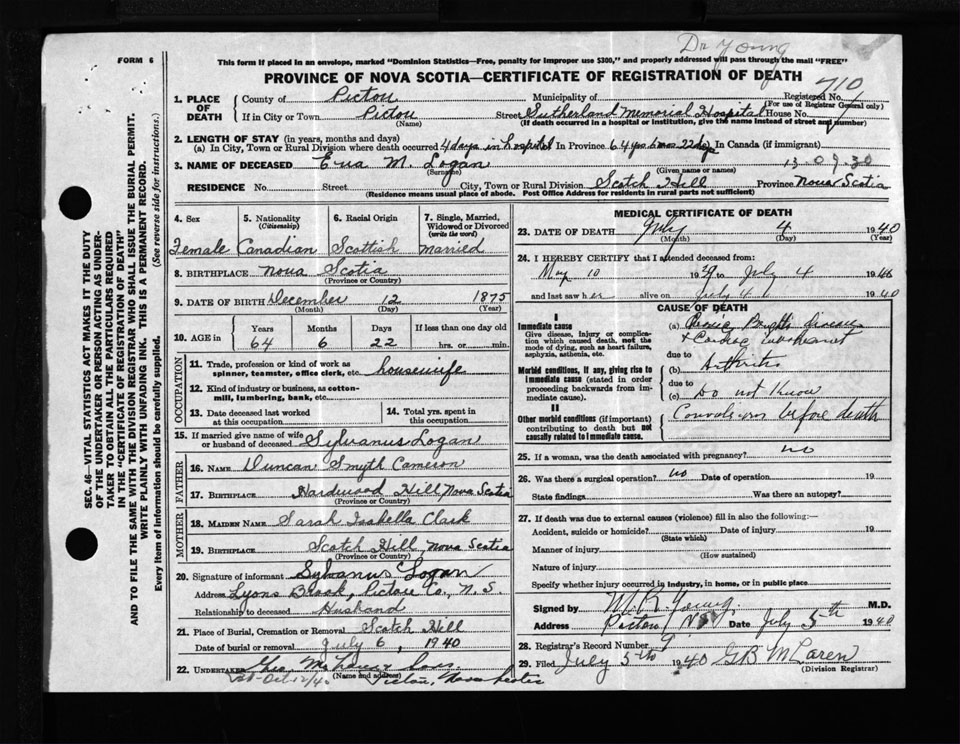 Dr Young
FORM 6
This form if placed in an envelope, marked "Dominion Statistics—Free, penalty for improper use $300," and properly addressed will pass through the mail "FREE"
PROVINCE OF NOVA SCOTIA—CERTIFICATE OF REGISTRATION OF DEATH
710
1. PLACE OF DEATH
County of Pictou Municipality of Registered No.
(For use of Registrar General only)
If in City or Town Pictou Street Sutherland Memorial Hospital House No.
(Name) (If death occurred in a hospital or institution, give the name instead of street and number)
2. LENGTH OF STAY (in years, months and days)
(a) In City, Town or Rural Division where death occurred 4 days in hospital In Province 64 yrs 6 mos 22 days In Canada (if immigrant)
3. NAME OF DECEASED M. Logan 13.09.30
(Surname) (Given name or names)
RESIDENCE No. Street City, Town or Rural Division Scotch Hill Province Nova Scotia
(Residence means usual place of abode. Post Office Address for residents in rural parts not sufficient)
4. Sex
Female
5. Nationality
(Citizenship)
Canadian
6. Racial Origin
Scottish
7. Single, Married, Widowed or Divorced
(write the word)
Married
8. BIRTHPLACE Nova Scotia
(Province or Country)
9. DATE OF BIRTH December 12 1875
(Month) (Day) (Year)
10. AGE in
Years Months Days If less than one day old
64 6 22 hrs. or min.
OCCUPATION
11. Trade, profession or kind of work as spinner, teamster, office clerk, etc. housewife
12. Kind of industry or business, as cotton-mill, lumbering, bank, etc.
13. Date deceased last worked at this occupation
14. Total yrs. spent in this occupation
15. If married give name of wife or husband of deceased Sylvanus Logan
FATHER
16. NAME Duncan Smyth Cameron
17. BIRTHPLACE Hardwood Hill Nova Scotia
(Province or Country)
MOTHER
18. MAIDEN NAME Sarah Isabella Clark
19. BIRTHPLACE Scotch Hill Nova Scotia
(Province or Country)
20. Signature of informant Sylvanus Logan
Address Lyons Brook, Pictou Co., N.S.
Relationship to deceased Husband
21. Place of Burial, Cremation or Removal Scotch Hill
Date of burial or removal July 6, 1940
22. UNDERTAKER
(Name and address)
Pictou, Nova Scotia
MEDICAL CERTIFICATE OF DEATH
23. DATE OF DEATH July 4 1940
(Month) (Day) (Year)
24. I HEREBY CERTIFY that I attended deceased from:
May 10 1939 to July 4 1940
and last saw her alive on July 4 1940
CAUSE OF DEATH
I
Immediate cause
Give disease, injury or complication which caused death, not the mode of dying, such as heart failure, asphyxia, asthenia, etc.
(a) Brights disease
due to
Morbid conditions, if any, giving rise to immediate cause (stated in order proceeding backwards from immediate cause).
(b) Arthritis
due to
(c) Do not know
II
Other morbid conditions (if important) contributing to death but not causally related to immediate cause.
Convulsions before death
25. If a woman, was the death associated with pregnancy? no
26. Was there a surgical operation? no Date of operation 19
State findings Was there an autopsy?
27. If death was due to external causes (violence) fill in also the following:—
Accident, suicide or homicide? Date of injury 19
(State which)
Manner of injury
(How sustained)
Nature of injury
Specify whether injury occurred in industry, in home, or in public place
Signed by M.R. Young M.D.
Address Pictou NS Date July 5th 1940
28. Registrar's Record Number 9
29. Filed July 5th 1940 G B McLaren
(Division Registrar)
SEC. 46—VITAL STATISTICS ACT MAKES IT THE DUTY
OF THE UNDERTAKER OR PERSON ACTING AS UNDER-
TAKER TO OBTAIN ALL THE PARTICULARS REQUIRED
IN THE "CERTIFICATE OF REGISTRATION OF DEATH"
AND TO FILE THE SAME WITH THE DIVISION REGISTRAR WHO SHALL ISSUE THE BURIAL PERMIT.
WRITE PLAINLY WITH UNFADING INK. THIS IS A PERMANENT RECORD.
Every item of Information should be carefully supplied. (See reverse side for instructions.)